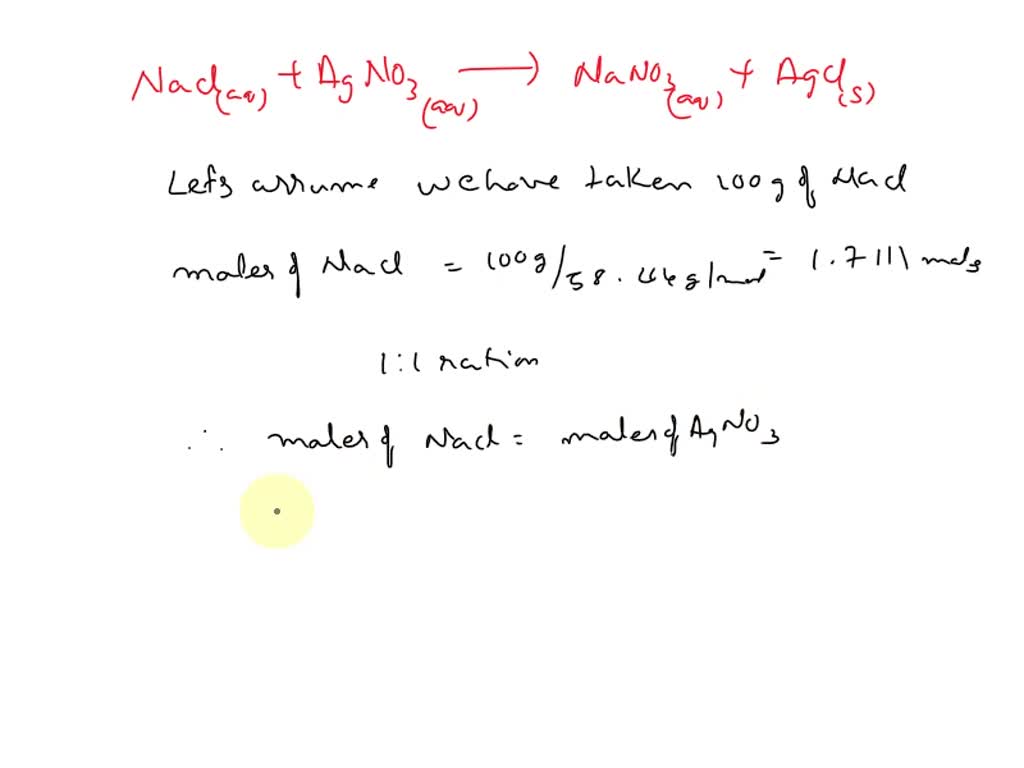 NaCl(aq) + AgNO3(aq) ⟶ NaNO3(aq) + AgCl(s)
Lets assume we have taken 100g of NaCl
moles of NaCl = 100g/58.44g/mol = 1.7111 mols
1:1 ration
∴ moles of NaCl = moles of AgNO3